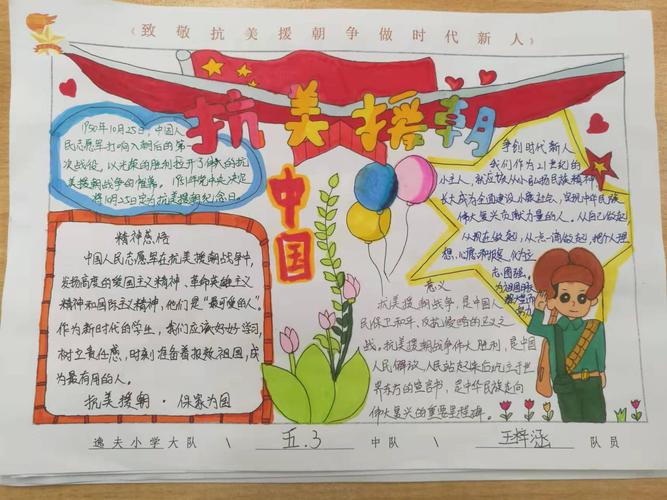 《致敬抗美援朝争做时代新人》
抗美援朝
中国
1950年10月25日，中国人
民志愿军打响入朝后的第一
次战役，以光荣的胜利拉开了伟大的抗
美援朝战争的帷幕。1951年党中央决定
将10月25日定为抗美援朝纪念日。
精神感悟
中国人民志愿军在抗美援朝战争中，
发扬高度的爱国主义精神、革命英雄主义
精神和国际主义精神，他们是“最可爱的人”。
作为新时代的学生，我们应该好好学习，
树立责任感，时刻准备着报效祖国，成
为最有用的人。
抗美援朝·保家为国
争创时代新人
我们作为21世纪的
小主人，就应该从小弘扬民族精神，
长大成为全面建设小康社会、实现中华民族
伟大复兴贡献力量的人。从自己做起
从现在做起，从点滴做起，把个人理
想、
志图强，
为祖国
努力
意义
抗美援朝战争，是中国人
民保卫和平、反抗侵略的正义之
战。抗美援朝战争伟大胜利，是中国
人民解放人民站起来后屹立于世
界东方的宣言书，是中华民族走向
伟大复兴的重要里程碑。
逸夫小学大队 \ 五.3 中队 \ 王梓涵 队员